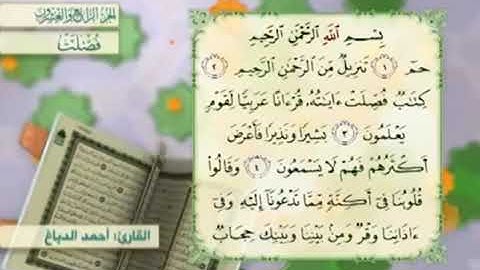 الجزء الرابع والعشرون
فصلت
بِسْمِ اللَّهِ الرَّحْمَٰنِ الرَّحِيمِ
حمٓ ۝١ تَنزِيلٌ مِّنَ الرَّحْمَٰنِ الرَّحِيمِ ۝٢
كِتَٰبٌ فُصِّلَتْ ءَايَٰتُهُۥ قُرْءَانًا عَرَبِيًّا لِّقَوْمٍ
يَعْلَمُونَ ۝٣ بَشِيرًا وَنَذِيرًا فَأَعْرَضَ
أَكْثَرُهُمْ فَهُمْ لَا يَسْمَعُونَ ۝٤ وَقَالُوا۟
قُلُوبُنَا فِىٓ أَكِنَّةٍ مِّمَّا تَدْعُونَآ إِلَيْهِ وَفِىٓ
ءَاذَانِنَا وَقْرٌ وَمِنۢ بَيْنِنَا وَبَيْنِكَ حِجَابٌ
القارئ: أحمد الدباغ